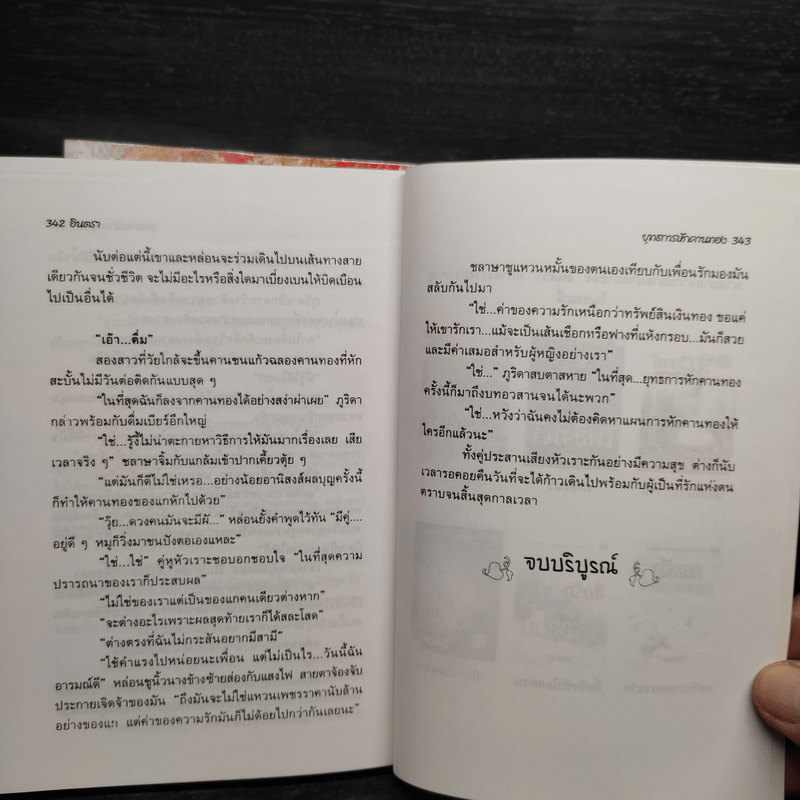 342 อินตรา
นับต่อแต่นี้เขาและหล่อนจะร่วมเดินไปบนเส้นทางสาย
เดียวกันจนชั่วชีวิต จะไม่มีอะไรหรือสิ่งใดมาเบี่ยงเบนให้บิดเบือน
ไปเป็นอื่นได้
“เอ๊า...ดื่ม”
สองสาวที่วัยใกล้จะขึ้นคานชนแก้วฉลองคานทองที่หัก
สะบั้นไม่มีวันต่อติดกันแบบสุด ๆ
“ในที่สุดฉันก็ลงจากคานทองได้อย่างสง่าผ่าเผย” ภูริดา
กล่าวพร้อมกับดื่มเบียร์อีกใหญ่
“ใช่...รู้งี้ไม่น่าตะกายหาวิธีการให้มันมากเรื่องเลย เสีย
เวลาจริง ๆ” ชลาษาจิ้มกับแกล้มเข้าปากเคี้ยวตุ้ย ๆ
“แต่มันก็ดีไม่ใช่เหรอ...อย่างน้อยอานิสงส์ผลบุญครั้งนี้
ก็ทำให้คานทองของแกหักไปด้วย”
“วุ๊ย...ดวงคนมันจะมีผั...” หล่อนยั้งคำพูดไว้ทัน “มีคู่....
อยู่ดี ๆ หมูก็วิ่งมาชนปังตอเองแหละ”
“ใช่...ใช่” คู่หูหัวเราะชอบอกชอบใจ “ในที่สุดความ
ปรารถนาของเราก็ประสบผล”
“ไม่ใช่ของเราแต่เป็นของแกคนเดียวต่างหาก”
“จะต่างอะไรเพราะผลสุดท้ายเราก็ได้สละโสด”
“ต่างตรงที่ฉันไม่กระสันอยากมีสามี”
“ใช้คำแรงไปหน่อยนะเพื่อน แต่ไม่เป็นไร...วันนี้ฉัน
อารมณ์ดี” หล่อนชูนิ้วนางข้างซ้ายส่องกับแสงไฟ สายตาจ้องจับ
ประกายเจิดจ้าของมัน “ถึงมันจะไม่ใช่แหวนเพชรราคานับล้าน
อย่างของแก แต่ค่าของความรักมันก็ไม่ด้อยไปกว่ากันเลยนะ”
ยุทธการหักคานทอง 343
ชลาษาชูแหวนหมั้นของตนเองเทียบกับเพื่อนรักมองมัน
สลับกันไปมา
“ใช่...ค่าของความรักเหนือกว่าทรัพย์สินเงินทอง ขอแค่
ให้เขารักเรา...แม้จะเป็นเส้นเชือกหรือฟางที่แห้งกรอบ...มันก็สวย
และมีค่าเสมอสำหรับผู้หญิงอย่างเรา”
“ใช่...” ภูริดาสบตาสหาย “ในที่สุด...ยุทธการหักคานทอง
ครั้งนี้ก็มาถึงบทอวสานจนได้นะพวก”
“ใช่...หวังว่าฉันคงไม่ต้องคิดหาแผนการหักคานทองให้
ใครอีกแล้วนะ”
ทั้งคู่ประสานเสียงหัวเราะกันอย่างมีความสุข ต่างก็นับ
เวลารอคอยคืนวันที่จะได้ก้าวเดินไปพร้อมกับผู้เป็นที่รักแห่งตน
ตราบจนสิ้นสุดกาลเวลา
จบบริบูรณ์